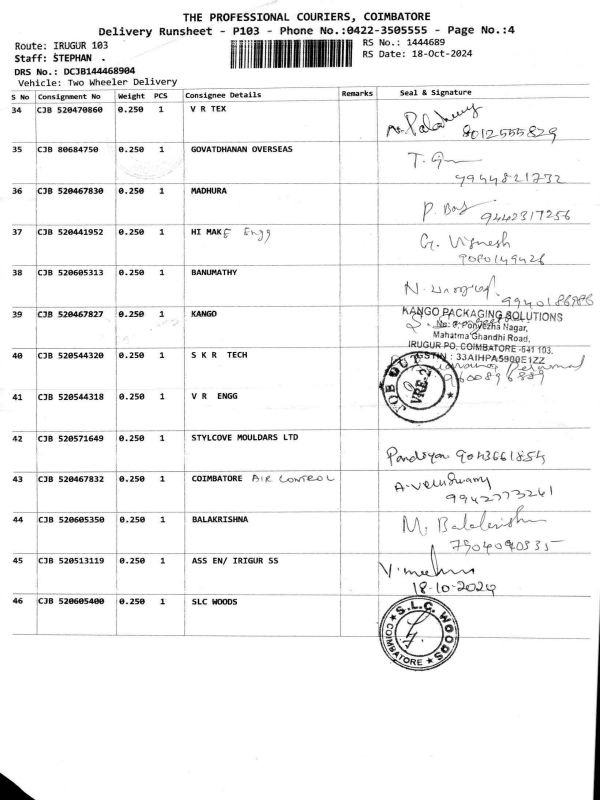 THE PROFESSIONAL COURIERS, COIMBATORE
Delivery Runsheet - P103 - Phone No.:0422-3505555 - Page No.:4
Route: IRUGUR 103
RS No.: 1444689
Staff: STEPHAN .
RS Date: 18-Oct-2024
DRS No.: DCJB144468904
Vehicle: Two Wheeler Delivery
S No Consignment No Weight PCS Consignee Details Remarks Seal & Signature
34 CJB 520470860 0.250 1 V R TEX
8012555829
35 CJB 80684750 0.250 1 GOVATDHANAN OVERSEAS
9944821732
36 CJB 520467830 0.250 1 MADHURA
9442317256
37 CJB 520441952 0.250 1 HI MAKE Engg G. Vignesh
9080149426
38 CJB 520605313 0.250 1 BANUMATHY
9940186986
39 CJB 520467827 0.250 1 KANGO KANGO PACKAGING SOLUTIONS
Nagar,
Mahatma Ghandhi Road,
IRUGUR PO, COIMBATORE -641 103.
GSTIN : 33AIHPA5900E1ZZ
40 CJB 520544320 0.250 1 S K R TECH
9600896889
JOB OUT
VRE-2
41 CJB 520544318 0.250 1 V R ENGG
42 CJB 520571649 0.250 1 STYLCOVE MOULDARS LTD Pandiyan 9043661854
43 CJB 520467832 0.250 1 COIMBATORE AIR CONTROL A. Veluswamy
9942773261
44 CJB 520605350 0.250 1 BALAKRISHNA M. Balakrishn
7904090335
45 CJB 520513119 0.250 1 ASS EN/ IRIGUR SS
18-10-2024
46 CJB 520605400 0.250 1 SLC WOODS
S.L.C. WOODS
COIMBATORE